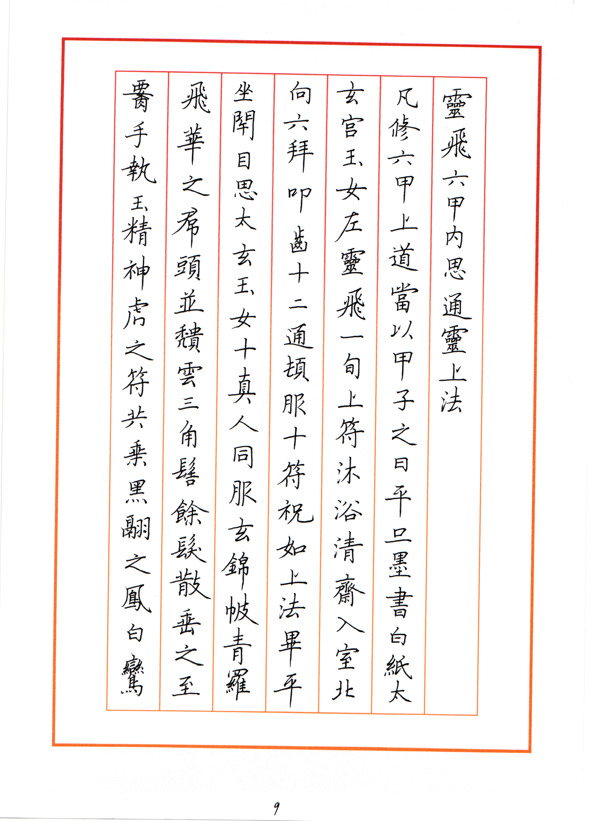 靈飛六甲內思通靈上法
凡修六甲上道當以甲子之日平旦墨書白紙太
玄宮玉女左靈飛一旬上符沐浴清齋入室北
向六拜叩齒十二通頓服十符祝如上法畢平
坐閉目思太玄玉女十真人同服玄錦帔青羅
飛華之帬頭並頹雲三角髻餘髮散垂之至
署手執玉精神虎之符共乘黑翮之鳳白鸞
9